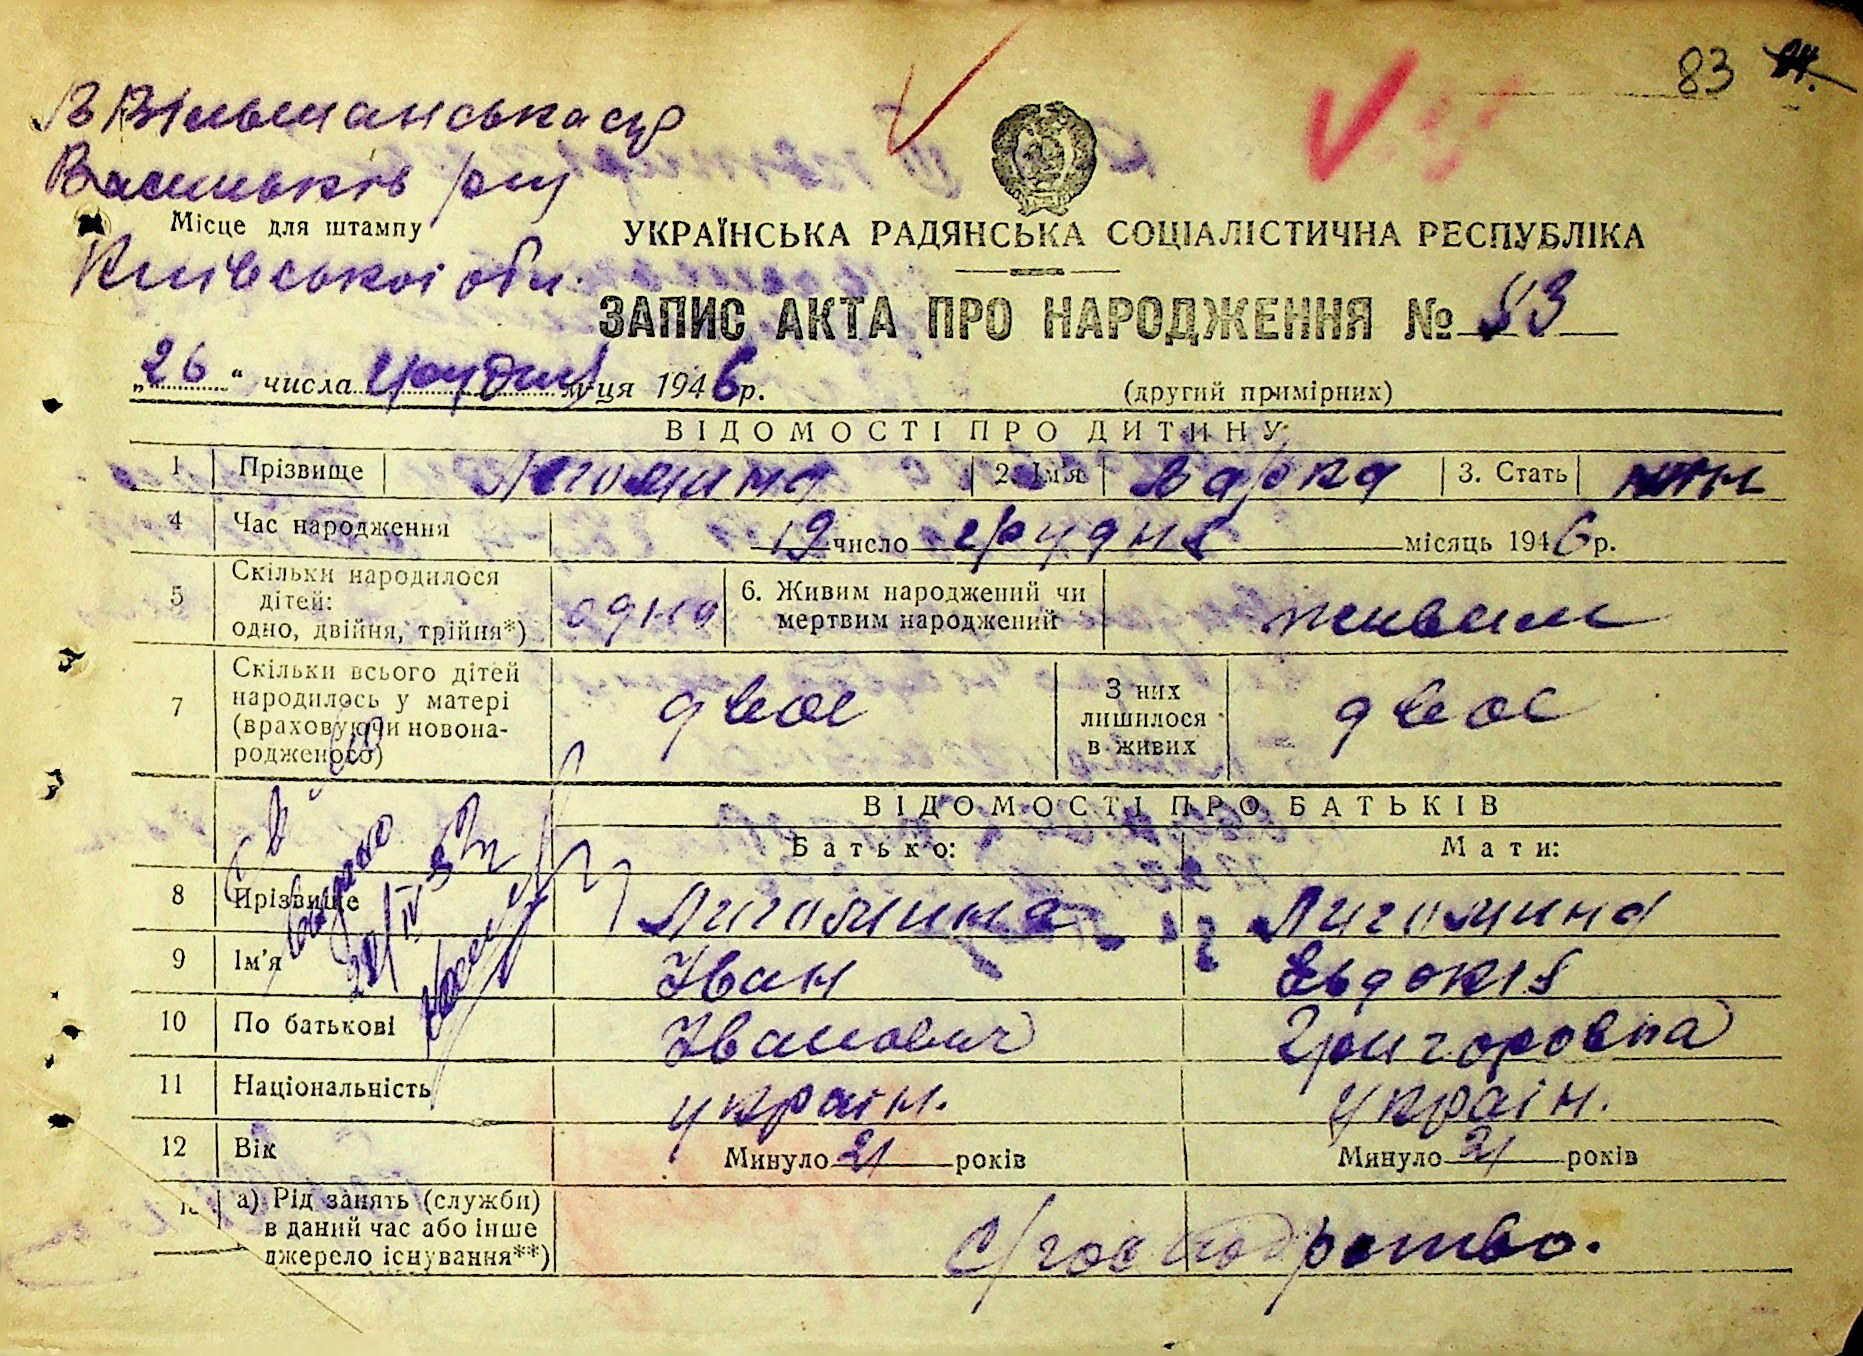 83
В Вільшанська с/р
Васильків р-ну
Місце для штампу
Київської обл.
УКРАЇНСЬКА РАДЯНСЬКА СОЦІАЛІСТИЧНА РЕСПУБЛІКА
ЗАПИС АКТА ПРО НАРОДЖЕННЯ № 83
„26“ числа грудня м-ця 1946 р.
(другий примірник)
ВІДОМОСТІ ПРО ДИТИНУ
1 Прізвище Лигомина 2. Ім'я Варка 3. Стать жін
4 Час народження 19 число грудня місяць 1946 р.
5 Скільки народилося дітей: одно, двійня, трійня*) одна 6. Живим народжений чи мертвим народжений живим
7 Скільки всього дітей народилось у матері (враховуючи новонародженого) двоє З них лишилося в живих двоє
ВІДОМОСТІ ПРО БАТЬКІВ
Батько: Мати:
8 Прізвище Лигомина Лигомина
9 Ім'я Іван Євдокія
10 По батькові Іванович Григоровна
11 Національність україн. україн.
12 Вік Минуло 21 років Минуло 21 років
а) Рід занять (служби) в даний час або інше джерело існування**) с/господарство.